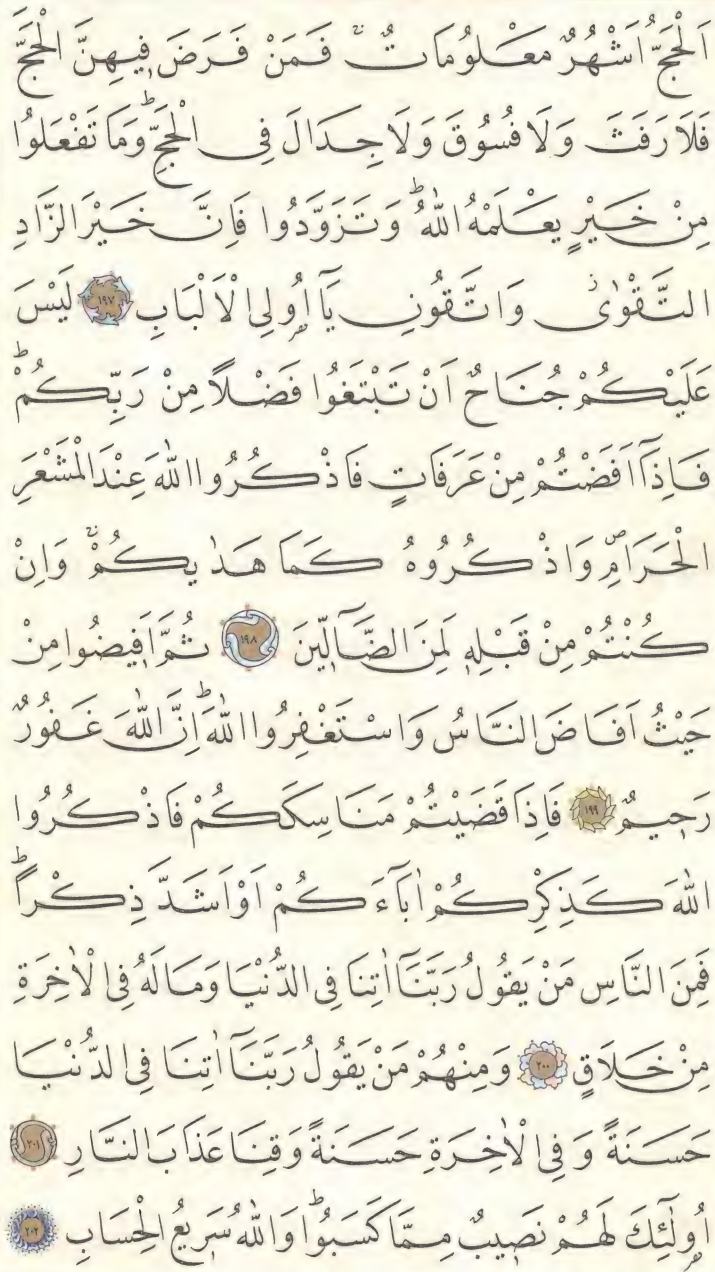 اَلْحَجُّ اَشْهُرٌ مَعْلُومَاتٌۚ فَمَنْ فَرَضَ فٖيهِنَّ الْحَجَّ
فَلَا رَفَثَ وَلَا فُسُوقَ وَلَا جِدَالَ فِى الْحَجِّؕ وَمَا تَفْعَلُوا
مِنْ خَيْرٍ يَعْلَمْهُ اللّٰهُؕ وَتَزَوَّدُوا فَاِنَّ خَيْرَ الزَّادِ
التَّقْوٰىؗ وَاتَّقُونِ يَٓا اُو۬لِى الْاَلْبَابِ ﴿١٩٧﴾ لَيْسَ
عَلَيْكُمْ جُنَاحٌ اَنْ تَبْتَغُوا فَضْلًا مِنْ رَبِّكُمْؕ
فَاِذَٓا اَفَضْتُمْ مِنْ عَرَفَاتٍ فَاذْكُرُوا اللّٰهَ عِنْدَ الْمَشْعَرِ
الْحَرَامِࣕ وَاذْكُرُوهُ كَمَا هَدٰيكُمْۚ وَاِنْ
كُنْتُمْ مِنْ قَبْلِهٖ لَمِنَ الضَّٓالّٖينَ ﴿١٩٨﴾ ثُمَّ اَفٖيضُوا مِنْ
حَيْثُ اَفَاضَ النَّاسُ وَاسْتَغْفِرُوا اللّٰهَؕ اِنَّ اللّٰهَ غَفُورٌ
رَحٖيمٌ ﴿١٩٩﴾ فَاِذَا قَضَيْتُمْ مَنَاسِكَكُمْ فَاذْكُرُوا
اللّٰهَ كَذِكْرِكُمْ اٰبَٓاءَكُمْ اَوْ اَشَدَّ ذِكْراًؕ
فَمِنَ النَّاسِ مَنْ يَقُولُ رَبَّنَٓا اٰتِنَا فِى الدُّنْيَا وَمَا لَهُ فِى الْاٰخِرَةِ
مِنْ خَلَاقٍ ﴿٢٠٠﴾ وَمِنْهُمْ مَنْ يَقُولُ رَبَّنَٓا اٰتِنَا فِى الدُّنْيَا
حَسَنَةً وَفِى الْاٰخِرَةِ حَسَنَةً وَقِنَا عَذَابَ النَّارِ ﴿٢٠١﴾
اُو۬لٰٓئِكَ لَهُمْ نَصٖيبٌ مِمَّا كَسَبُواؕ وَاللّٰهُ سَرٖيعُ الْحِسَابِ ﴿٢٠٢﴾